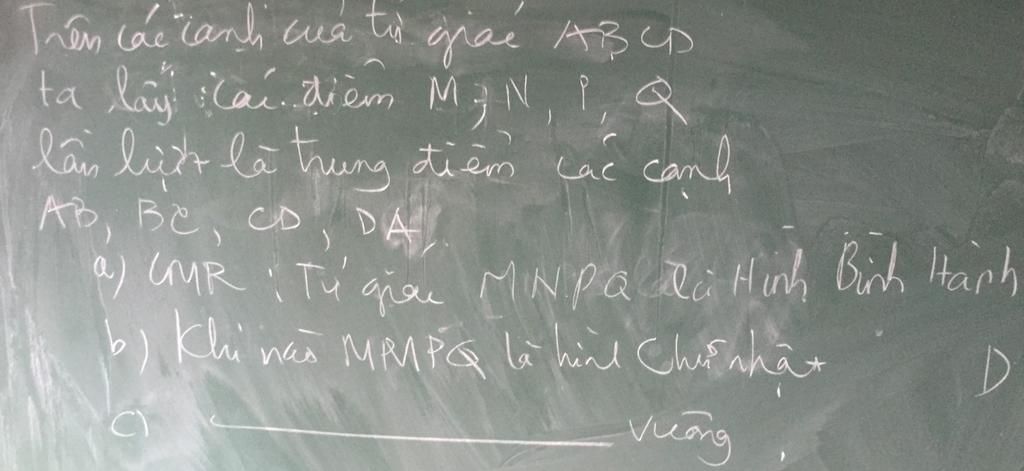 Trên các cạnh của tứ giác ABCD
ta lấy các điểm M, N, P, Q
lần lượt là trung điểm các cạnh
AB, BC, CD, DA.
a) CMR : Tứ giác MNPQ là Hình Bình Hành
b) Khi nào MNPQ là hình Chữ nhật
D
c) ———————— Vuông